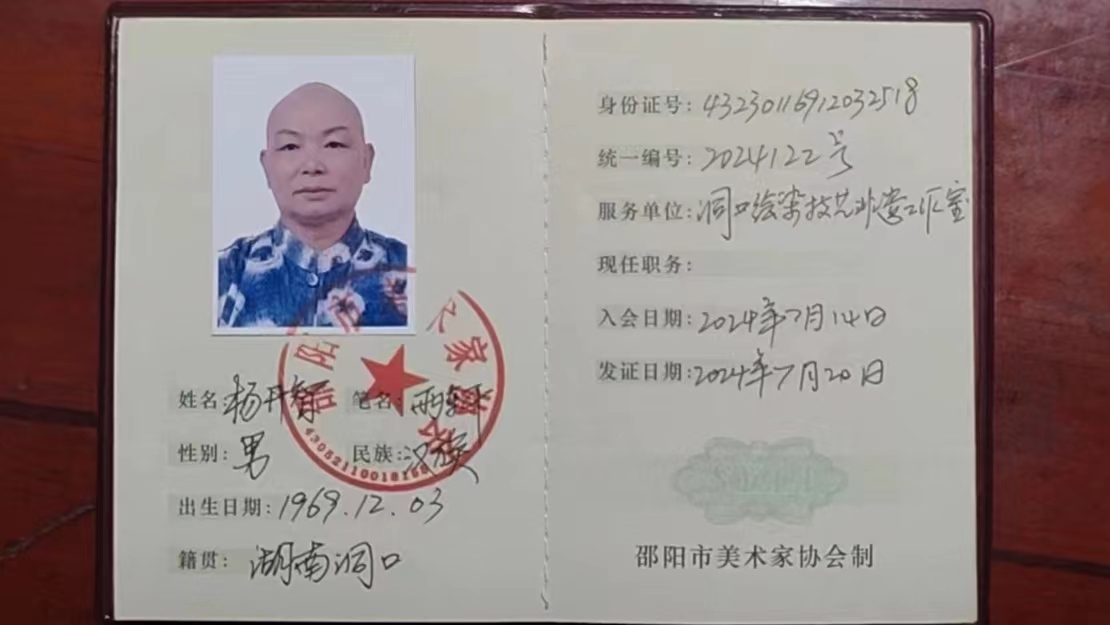 姓名: 杨开智 笔名:
性别: 男 民族: 汉族
出生日期: 1969.12.03
籍贯: 湖南洞口
家
4305211001816
身份证号: 432301196912032518
统一编号: 2024122号
服务单位: 洞口绘染技艺非遗工作室
现任职务:
入会日期: 2024年7月14日
发证日期: 2024年7月20日
邵阳市美术家协会制